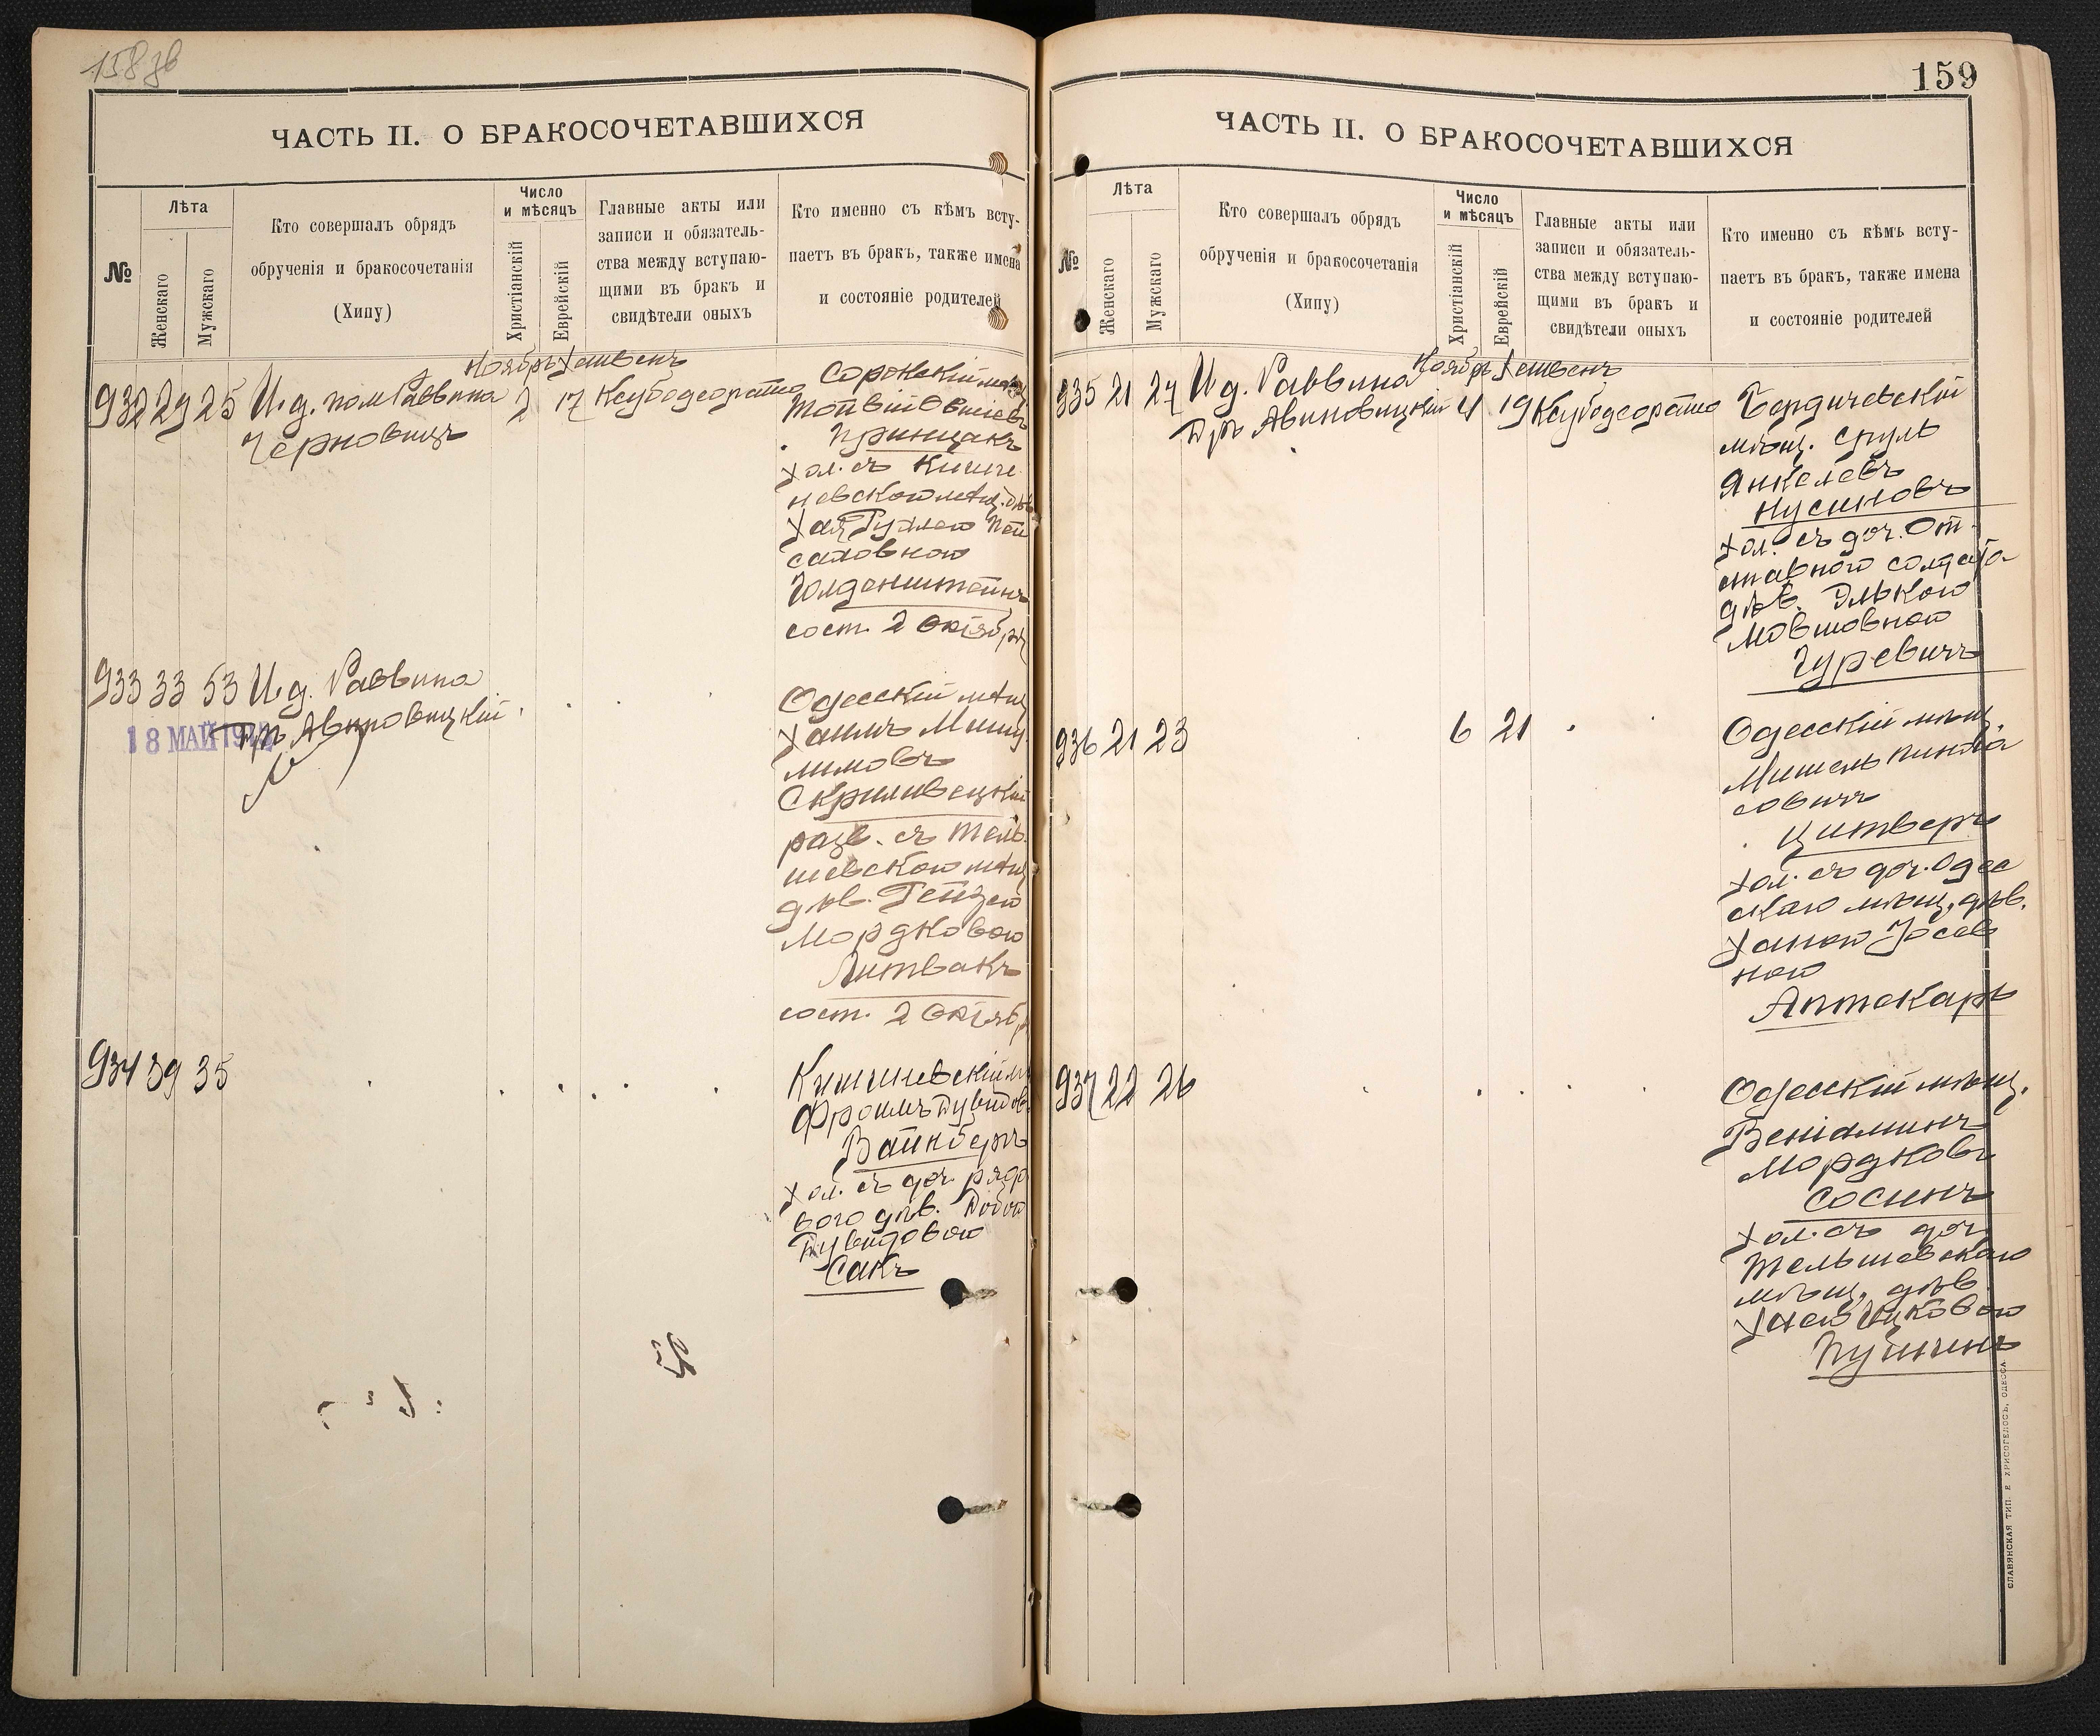 158 зв
ЧАСТЬ II. О БРАКОСОЧЕТАВШИХСЯ
№
Лѣта
Женскаго
Мужскаго
Кто совершалъ обрядъ
обрученія и бракосочетанія
(Хипу)
Число
и мѣсяцъ
Христіанскій
Еврейскій
Главные акты или
записи и обязатель-
ства между вступаю-
щими въ бракъ и
свидѣтели оныхъ
Кто именно съ кѣмъ всту-
паетъ въ бракъ, также имена
и состояніе родителей
Ноябрь Хешвенъ
932 29 25 И. д. пом Раввина 2 17 Ксубодеорайта
Черновицъ
Сорокскій
Тойвій Овшіевъ
Принцакъ
хол. съ Кишине
невской мѣщ. дѣв
Хая Рухлею Пей
саховною
Голденштейнъ
сост. 2 Октября
933 33 53 И. д. Раввина
18 МАЙ
Дръ Авиновицкій
Одесскій мѣщ
Хаимъ
лимовъ
Скриливецкій
разв. съ Тель
шевскою мѣщ
дѣв. Гейзею
Мордковою
Литвакъ
сост. 2 Октяб
934 39 35
Кишиневскій
Фроимъ Дувидов
Вайнберъ
хол. съ доч. рядо
вого дѣв. Добою
Дувидовою
Сакъ
159
ЧАСТЬ II. О БРАКОСОЧЕТАВШИХСЯ
№
Лѣта
Женскаго
Мужскаго
Кто совершалъ обрядъ
обрученія и бракосочетанія
(Хипу)
Число
и мѣсяцъ
Христіанскій
Еврейскій
Главные акты или
записи и обязатель-
ства между вступаю-
щими въ бракъ и
свидѣтели оныхъ
Кто именно съ кѣмъ всту-
паетъ въ бракъ, также имена
и состояніе родителей
Ноябрь Хешвенъ
935 21 27 И. д. Раввина 4 19 Ксубодеорайта
Дръ Авиновицкій
Бердичевскій
мѣщ. Сруль
Янкелевъ
Нусиновъ
хол. съ доч. От
ставного солдата
дѣв. Элькою
Мовшовною
Гуревичъ
936 21 23 6 21
Одесскій мѣщ.
Мишель Пинха
совичъ
Цитверъ
хол. съ доч. Одес
скаго мѣщ. дѣв.
Ханою Іосев
ною
Аптекарь
937 22 26
Одесскій мѣщ.
Веніаминъ
Мордковъ
Сосинъ
хол. съ доч
Тельшевскаго
мѣщ. дѣв
Хаею Ицковою
СЛАВЯНСКАЯ ТИП. Е ХРИСОГЕЛОСЪ, ОДЕССА